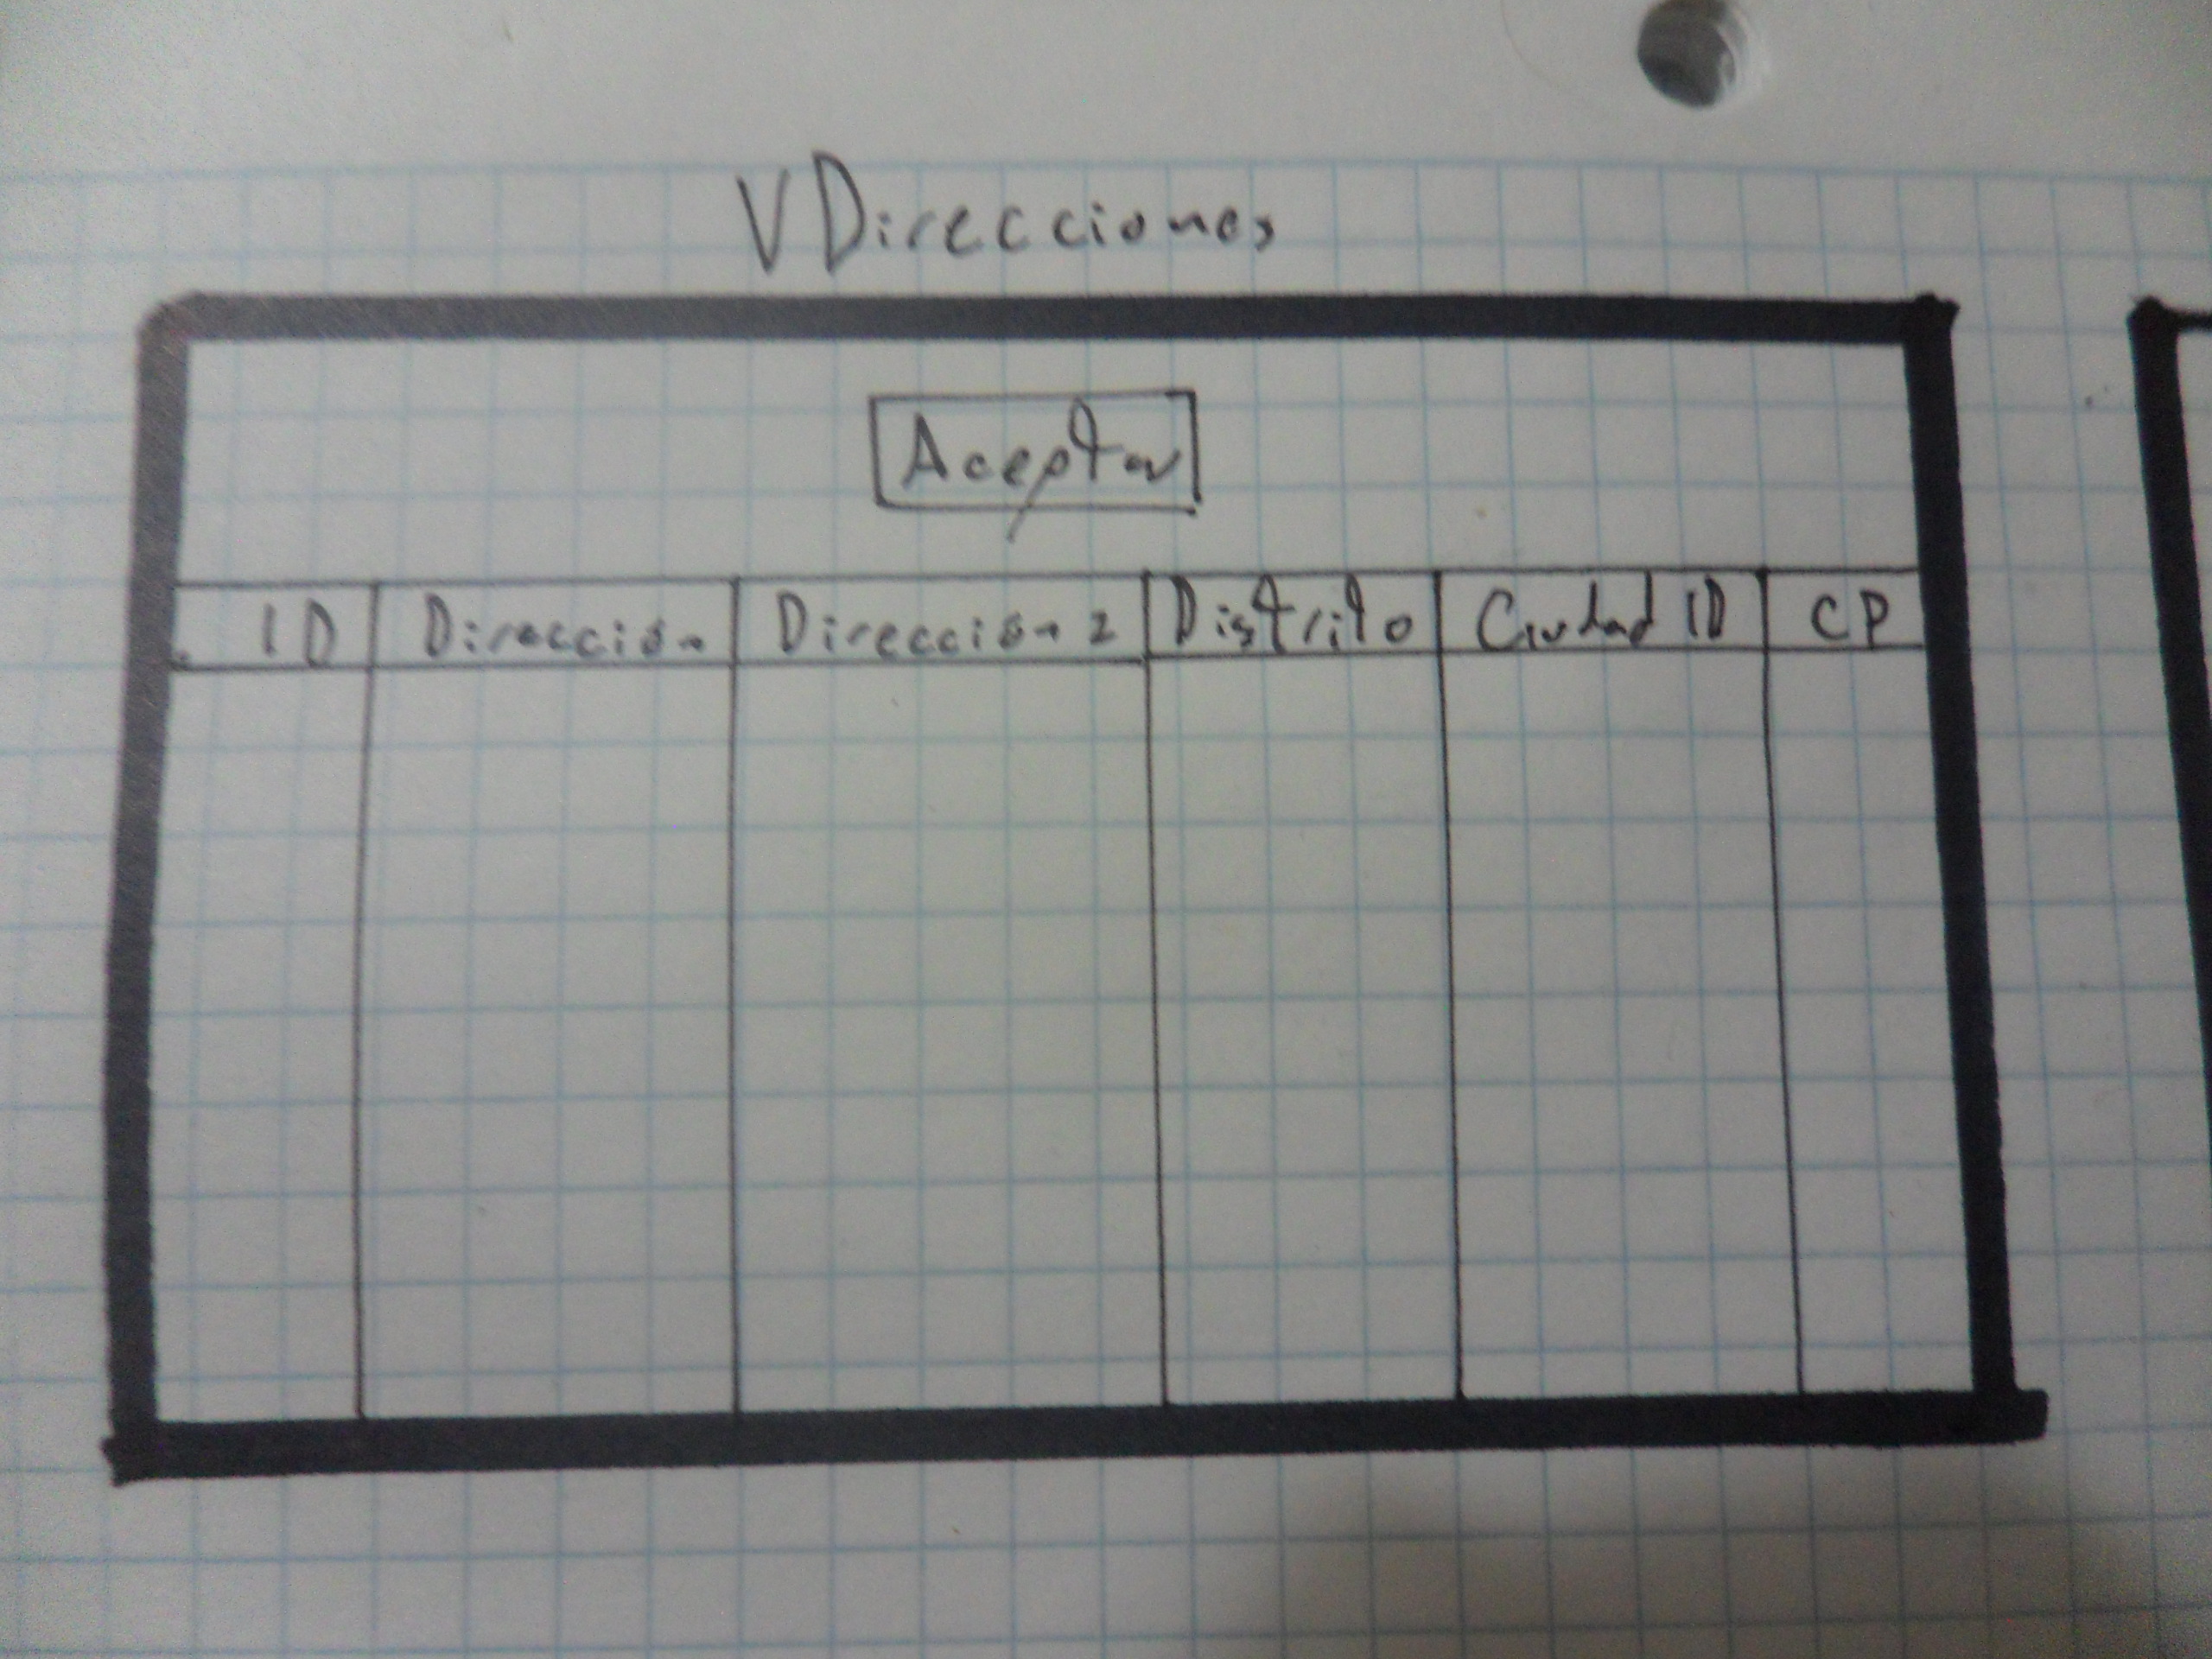 VDirecciones
Aceptar
ID Dirección Dirección 2 Distrito Ciudad ID CP